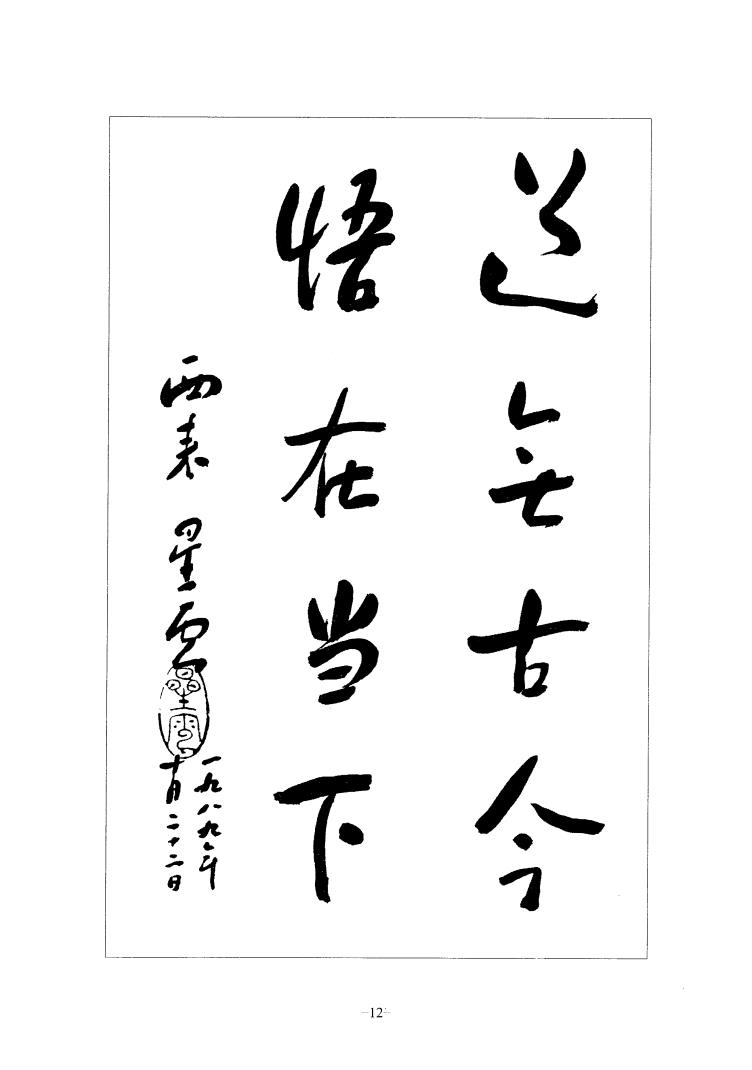 道無古今
悟在当下
西来 星雲
星雲
一九八九年
十月二十二日
-12-